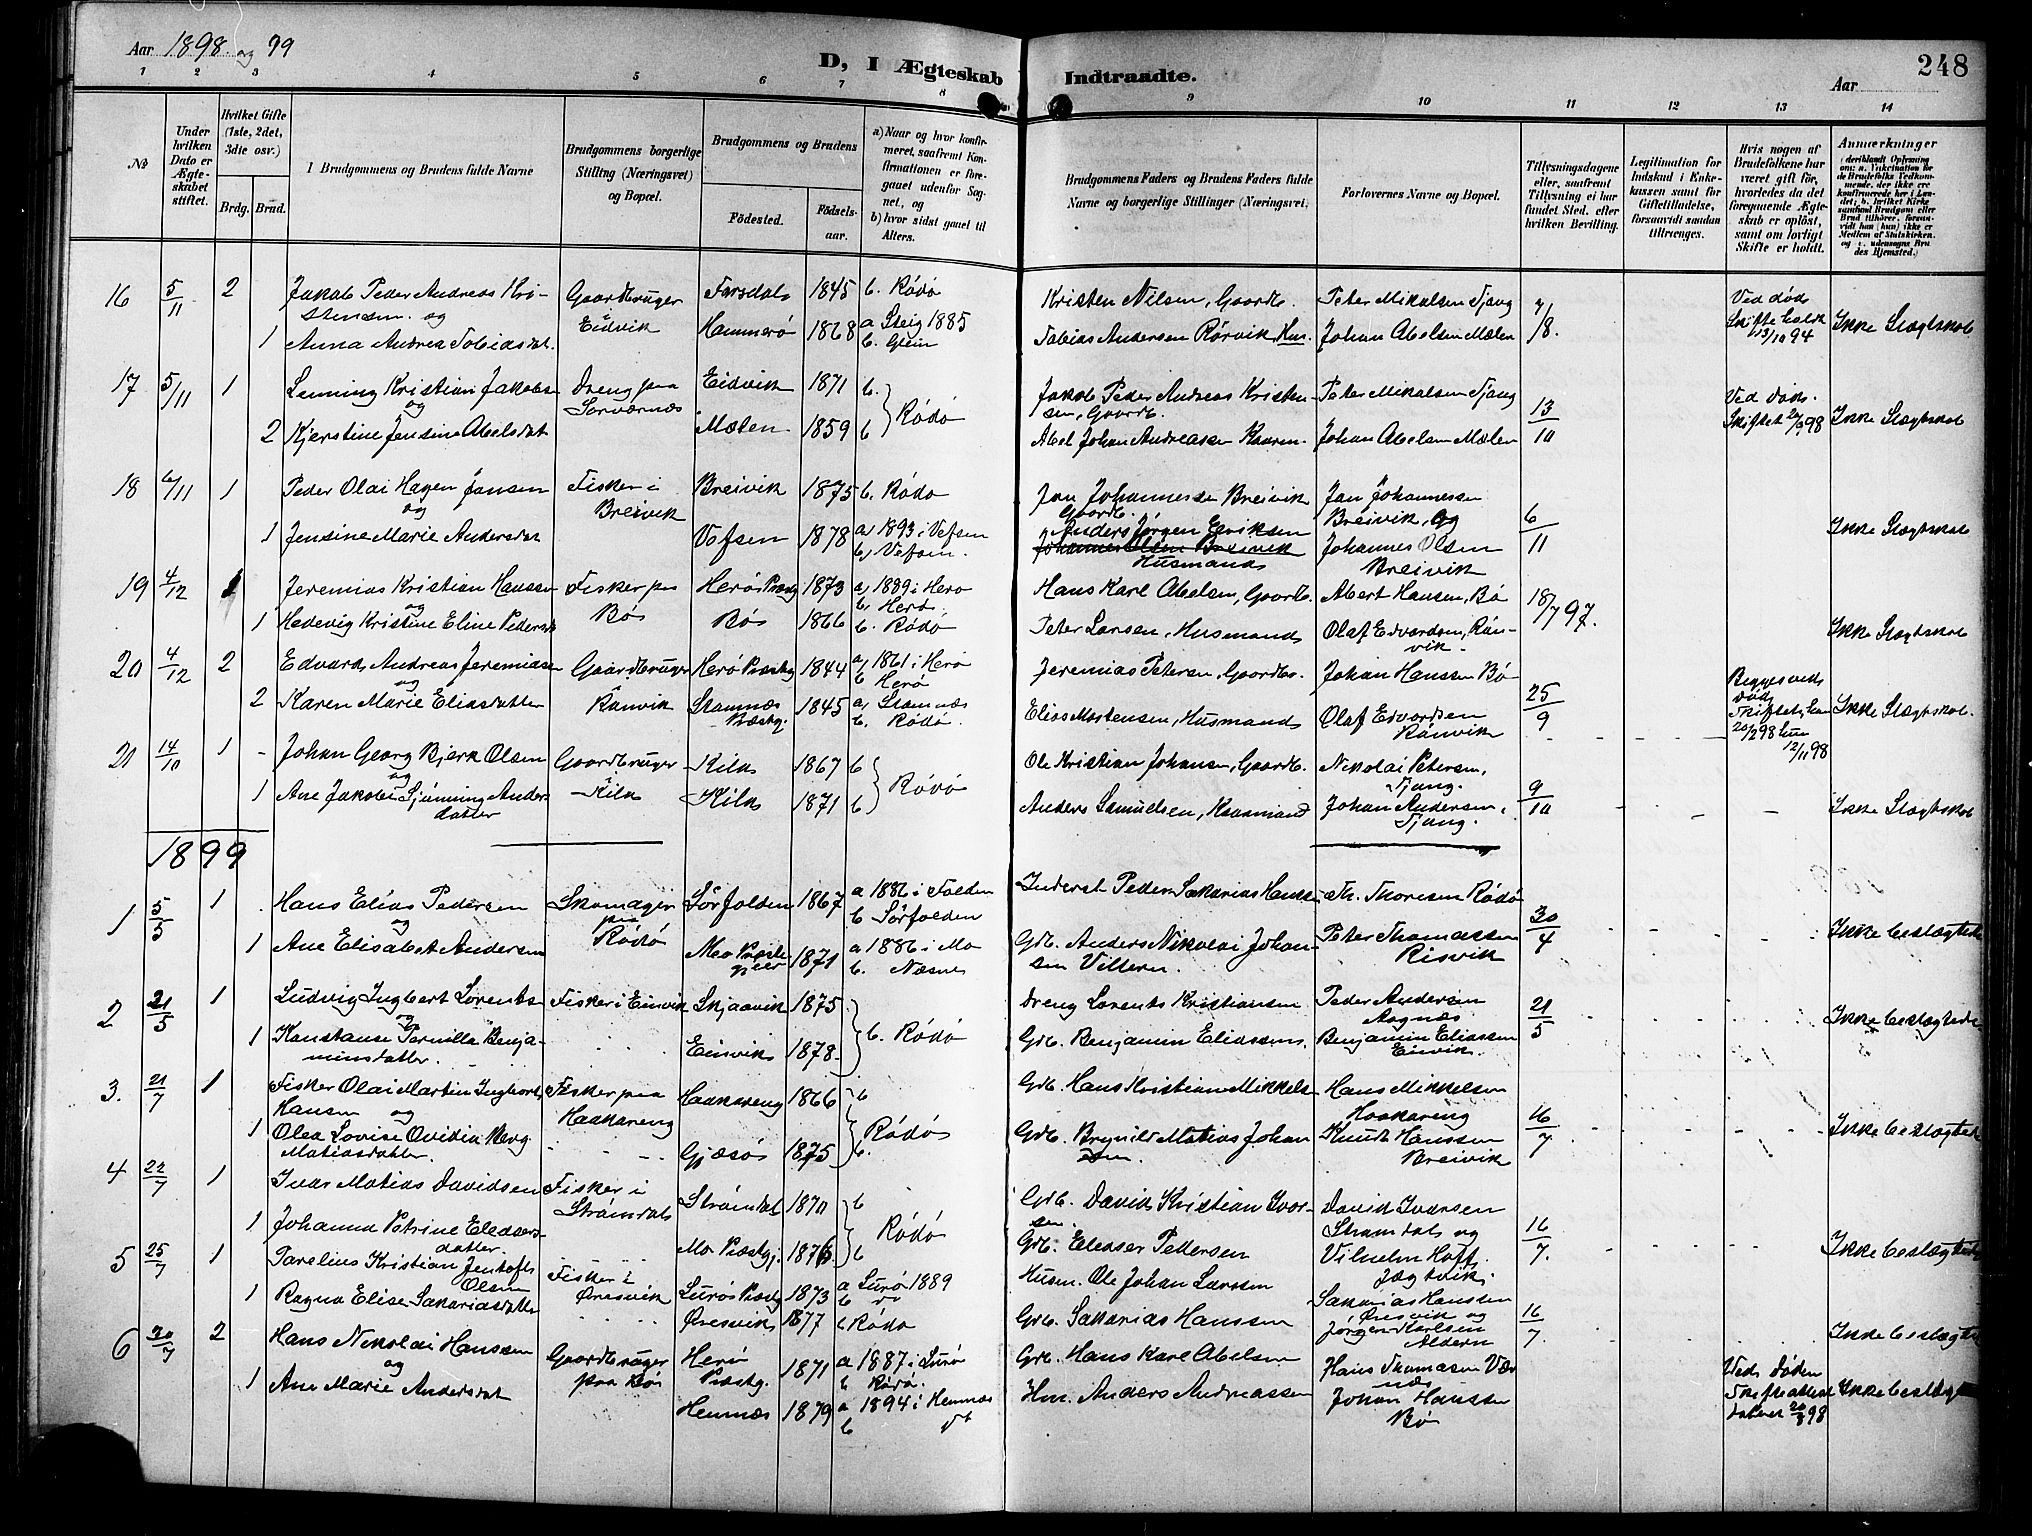 Aar 1898 og 99
D, I Ægteskab Indtraadte.
Aar
248
1 2 3 4 5 6 7 8 9 10 11 12 13 14
No
Under hvilken Dato er Ægteskabet stiftet.
Hvilket Gifte (1ste, 2det, 3die osv.)
Brdg. Brud.
I Brudgommens og Brudens fulde Navne
Brudgommens borgerlige Stilling (Næringsvei) og Bopæl.
Brudgommens og Brudens
Fødested.
Fødselsaar.
a) Naar og hvor konfirmeret, saafremt Konfirmationen er foregaaet udenfor Sognet, og
b) hvor sidst gaaet til Alters.
Brudgommens Faders og Brudens Faders fulde Navne og borgerlige Stillinger (Næringsvei)
Forlovernes Navne og Bopæl.
Tillysningsdagene eller, saafremt Tillysning ei har fundet Sted, efter hvilken Bevilling.
Legitimation for Indskud i Enkekassen samt for Giftetilladelse, forsaavidt saadan tiltrænges.
Hvis nogen af Brudefolkene har været gift før, hvorledes da det foregaaende Ægteskab er opløst, samt om lovligt Skifte er holdt.
Anmærkninger
16 5/11 2 Jakob Peder Andreas Kri- Gaardbruger Farsdal 1845 b. Rødø Kristen Nilsen, Gaardb. Peter Mikalsen Tjong 7/8. Ved død Skifte holdt 13/10 94 Ikke Slægtskab
stensen og Eidvik
1 Anna Andrea Tobiasdat. Hammerø 1868 a Steig 1885 b. Glein Tobias Andersen Rørvik Hus. Johan Abelsen Mælen
17 5/11 1 Lenning Kristian Jakobse Dreng paa Eidvik 1871 b. Jakob Peder Andreas Kristen- Peter Mikalsen Tjong 13/10 Ved døds. Skiftet 98 Ikke Slægtskab
og Sørværnæs sen, Gaardb. Rødø
2 Kjerstine Jensine Abelsdat Mælen 1859 b Abel Johan Andreassen Kaarem. Johan Abelsen Mælen
18 6/11 1 Peder Olai Hagen Jansen Fisker i Breivik 1875 b. Rødø Jan Johannessen Breivik Jan Johannessen 6/11 Ikke Slægtskab
og Breivik Gaardb. Breivik, og
1 Jensine Marie Andersdat Vefsen 1878 a, 1893 i Vefsen b, Vefsen. Anders Jørgen Eriksen Johannes Olsen
Johannes Olsen Breivik Husmand Breivik
19 4/12 1 Jeremias Kristian Hanssen Fisker paa Herø Præstg 1873 a, 1889 i Herø b, Herø. Hans Karl Abelsen, Gaardb. Abert Hansen, Bø 18/7 97. Ikke Slægtskab
og Bø
1 Hedevig Kristine Eline Pedersd Bø 1866 b. Rødø Peter Larsen, Husmand Olaf Edvardsen, Rånvik.
20 4/12 2 Edvard Andreas Jeremiasen Gaardbruger Herø Præstg 1844 a, 1861 i Herø b Herø Jeremias Petersen, Gaardb. Johan Hanssen Bø 25/9 Begges ved død Skiftet, han 20/2 98 hun 12/11 98 Ikke Slægtskab.
og Rånvik
2 Karen Marie Eliasdatter Stamnæs Præstg. 1845 a, Stamnæs b. Rødø. Elias Mortensen, Husmand Olaf Edvardsen Rånvik
21 14/10 1 - Johan Georg Bjerk Olsen Gaardbruger Kila 1867 b Rødø Ole Kristian Johansen, Gaardb. Nikolai Petersen, Tjong. 9/10 Ikke Slægtskab
og Kila
1 Ane Jakobi Sjønning Anders- datter Kila 1871 b Anders Samuelsen, Kaarmand Johan Andersen, Tjong.
1899
1 5/5 1 Hans Elias Pedersen Skomager Sørfolden 1867 a 1886 i Folden b Sørfolden Inderst Peder Sakarias Hanss Th. Thoresen Rødø 30/4 Ikke beslægtede
og paa Rødø
1 Ane Elisabet Andersen Mo Præste- gjeld 1871 a 1886 i Mo b. Næsne Grb. Anders Nikolai Johan- sen Villern. Peter Thomassen Risvik
2 21/5 1 Ludvig Ingbert Lorents- Fisker i Einvik Skjaavik 1875 b. Rødø Dreng Lorents Kristiansen Peder Andersen Aagnæs 21/5 Ikke beslægtede
og
1 Konstanse Pernilla Benja- minsdatter. Einvik 1878 Grb. Benjamin Eliassens. Benjamin Eliassen Einvik.
3. 21/7 1 Fisker Olai Martin Ingbort, Fisker paa Haakareng 1866 b Grb. Hans Kristian Mikkels Hans Mikkelsen Haakareng 16/7 Ikke beslægtede
Hansen og Haakareng Rødø
1 Olea Lovise Ovidia Berg Matiasdatter. Gjæsø 1875 b. Grb. Brynild Matias Johan sen Knudt Hanssen Breivik
4 22/7 1 Ivar Matias Davidsen Fisker i Strømdal Strømdal 1870 b Rødø Grb. David Kristian Ivar- sen David Ivarsen Strømdal og 16/7. Ikke beslægtede
1 Johanna Petrine Eleasers- datter. Mo Præstgj. 1876 b Grb. Eleaser Pedersen Vilhelm Hoff, Jægtvik.
5 25/7 1 Parelius Kristian Jentoft Olsen Fisker i Øresvik Lurø Præstg 1873 a Lurø 1889 b do Husm. Ole Johan Larssen Sakarias Hanssen Øresvik og 16/7. Ikke beslægtede
1 Ragna Elise Sakariasdatter Øresvik 1877 b Rødø Grb. Sakarias Hanssen Jørgen Karlsen Aldern
6 30/7 2 Hans Nikolai Hanssen Gaardbruger Herø Præstg. 1871 a 1887 i Lurø b Rødø. Grb. Hans Karl Abelsen Hans Thomasen Vær- næs Ved Døden Skifteattest dateret 20/3 98 Ikke beslægtede
og paa Bø
1 Ane Marie Andersdat Hemnæs 1879 a 1894 i Hemnæs b dt Hm. Anders Andreassen Johan Hanssen Bø